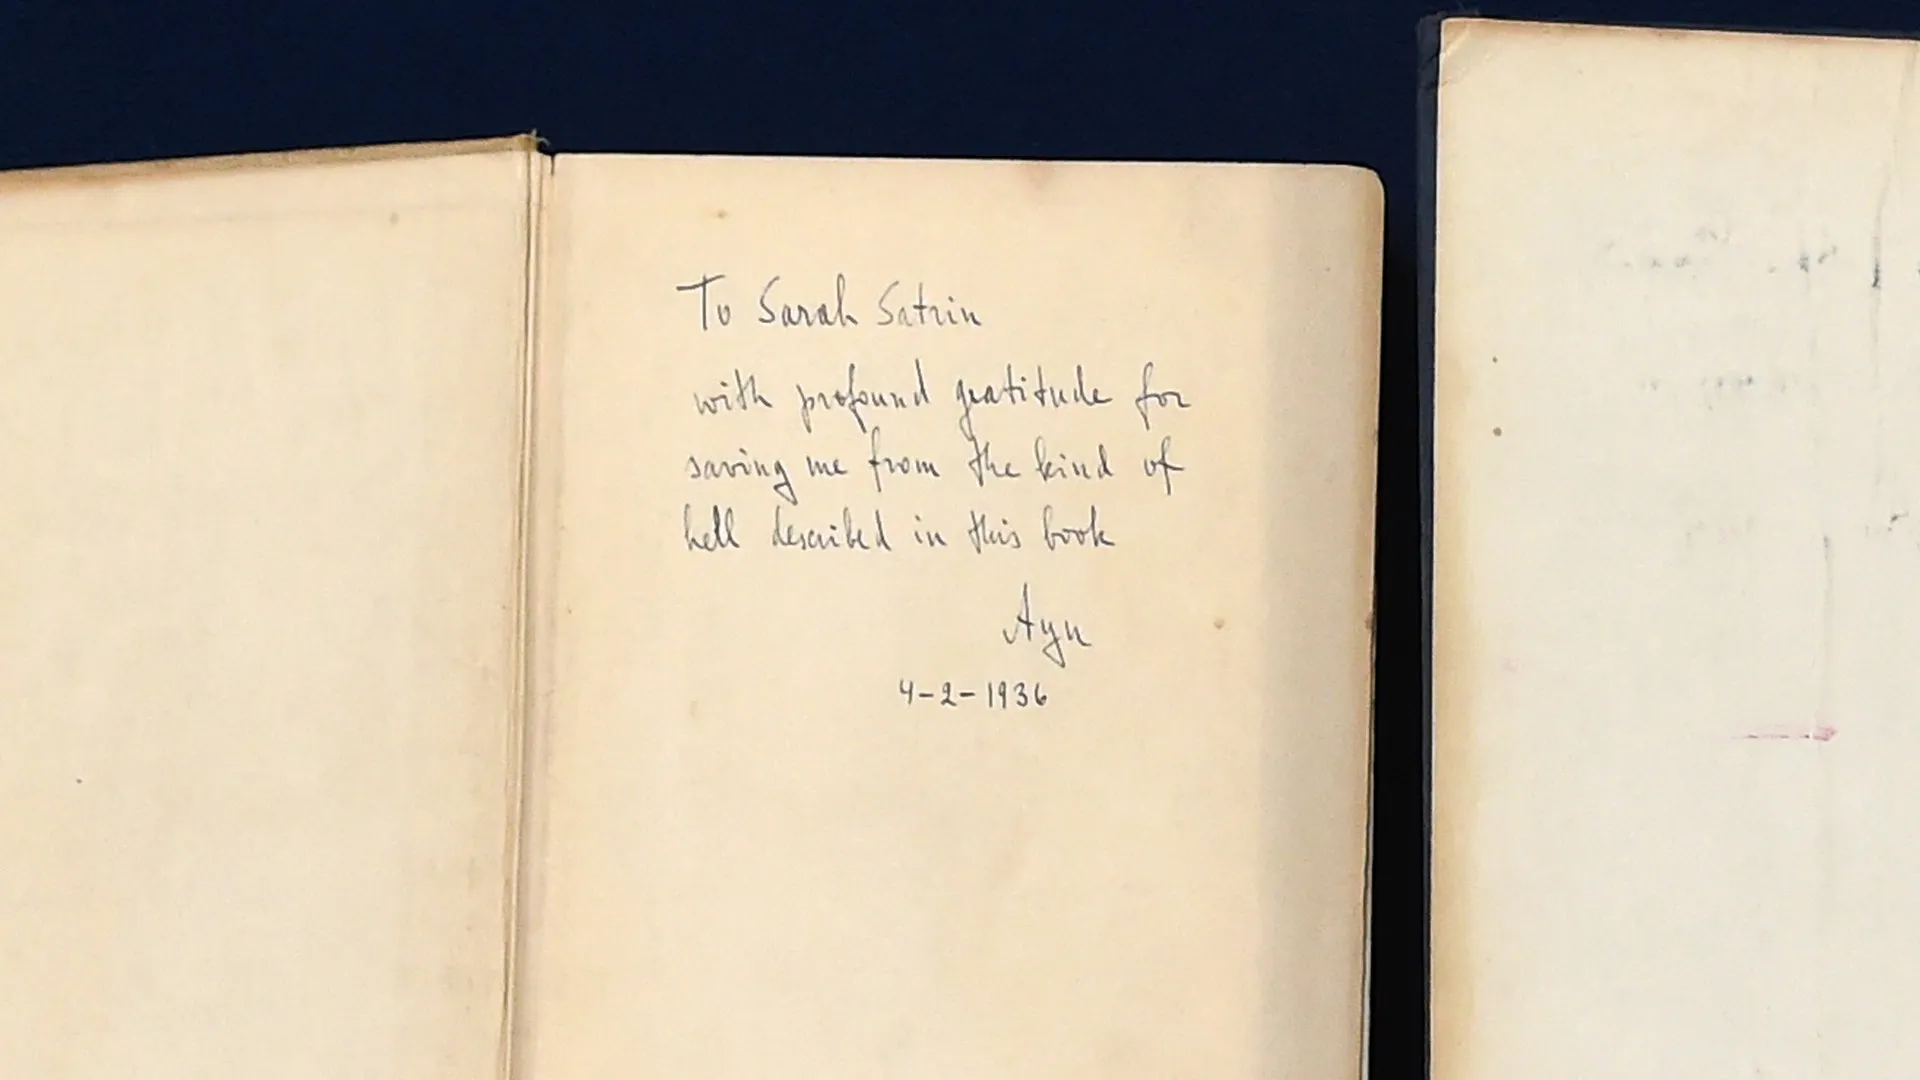 To Sarah Satrin
with profound gratitude for
saving me from the kind of
hell described in this book
Ayn
4-2-1936